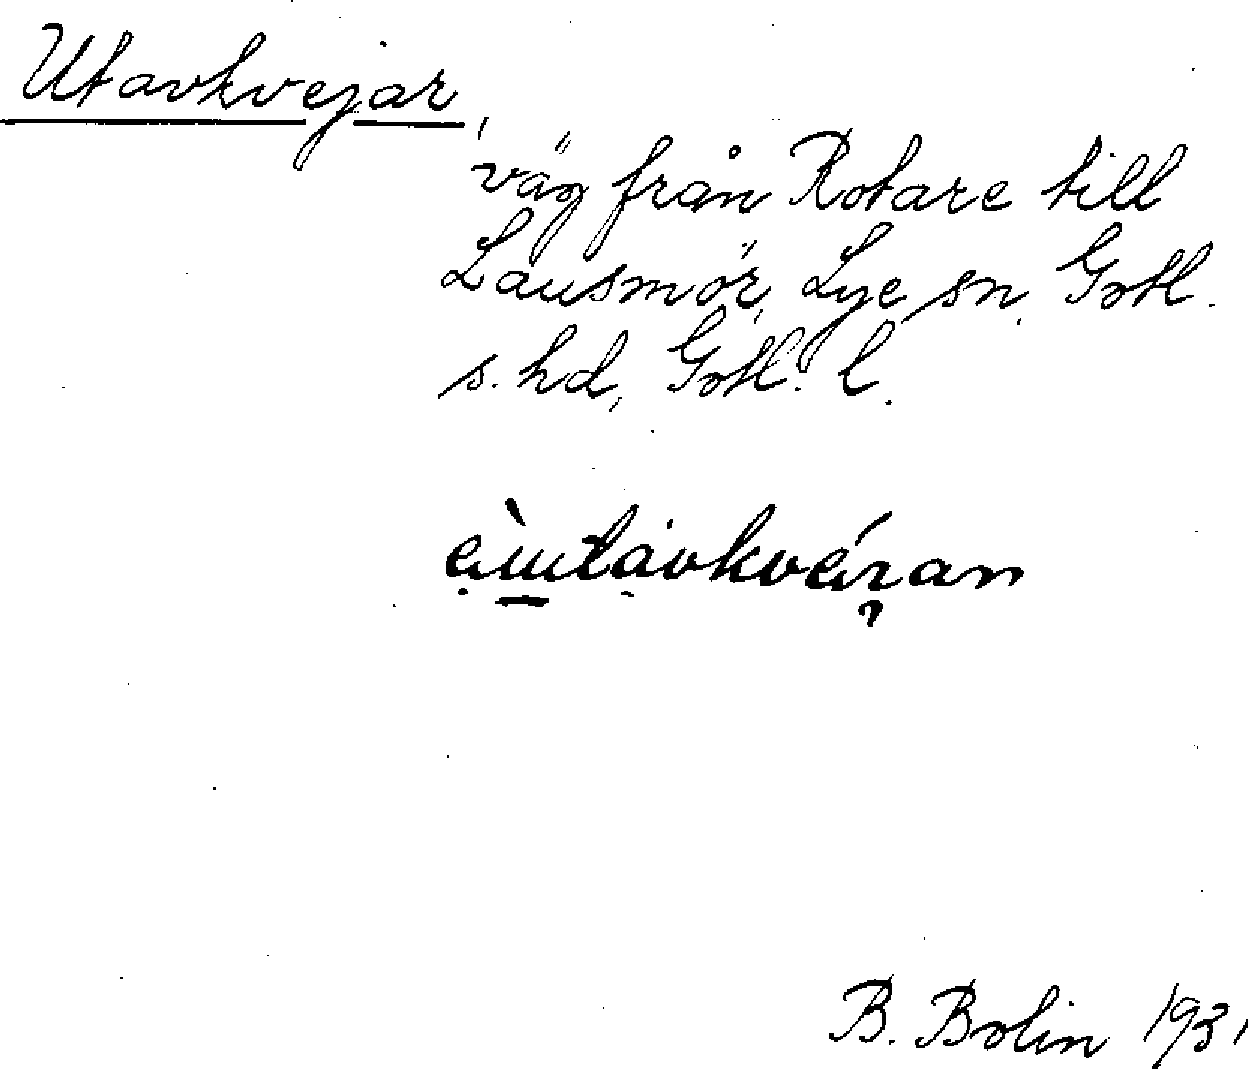 Utavkvejar,
väg från Rotare till
Lausmör, Lye sn, Gotl.
s. hd, Gotl. l.
B. Bolin 1931